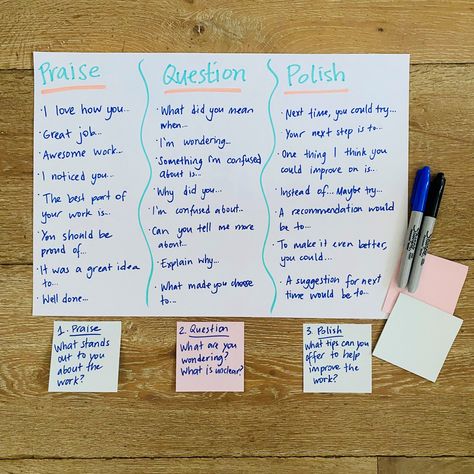 Praise
· I love how you...
· Great job...
· Awesome work...
· I noticed you...
· The best part of
your work is...
· You should be
proud of...
· It was a great idea
to...
· Well done...
Question
· What did you mean
when...
· I'm wondering...
· Something I'm confused
about is...
· Why did you...
· I'm confused about...
· Can you tell me
more about...
· Explain why...
· What made you choose
to...
Polish
· Next time, you could try...
· Your next step is to...
· One thing I think you
could improve on is...
· Instead of... Maybe try...
· A recommendation would
be to...
· To make it even better,
you could...
· A suggestion for next
time would be to...
Sharpie
1. Praise
What stands
out to you
about the
work?
2. Question
What are you
wondering?
What is unclear?
3. Polish
What tips can you
offer to help
improve the
work?